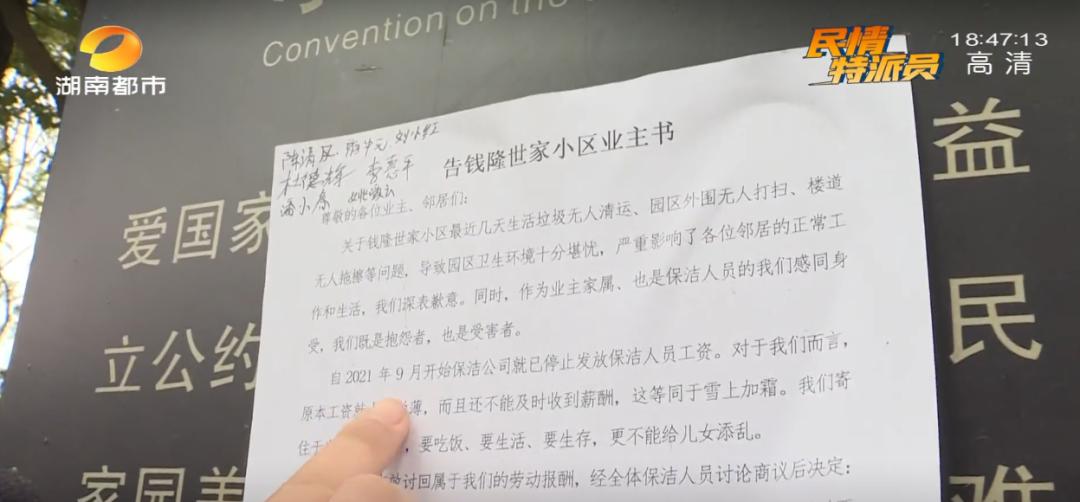 Convention on the
湖南都市
民情
特派员
18:47:13
高清
告钱隆世家小区业主书
尊敬的各位业主、邻居们:
关于钱隆世家小区最近几天生活垃圾无人清运、园区外围无人打扫、楼道
无人拖擦等问题,导致园区卫生环境十分堪忧,严重影响了各位邻居的正常工
作和生活,我们深表歉意。同时,作为业主家属、也是保洁人员的我们感同身
受,我们既是抱怨者,也是受害者。
自2021年9月开始保洁公司就已停止发放保洁人员工资。对于我们而言,
原本工资就 薄,而且还不能及时收到薪酬,这等同于雪上加霜。我们寄
住于 ,要吃饭、要生活、要生存,更不能给儿女添乱。
讨回属于我们的劳动报酬,经全体保洁人员讨论商议后决定:
爱国家
立公约
家园美
益
民